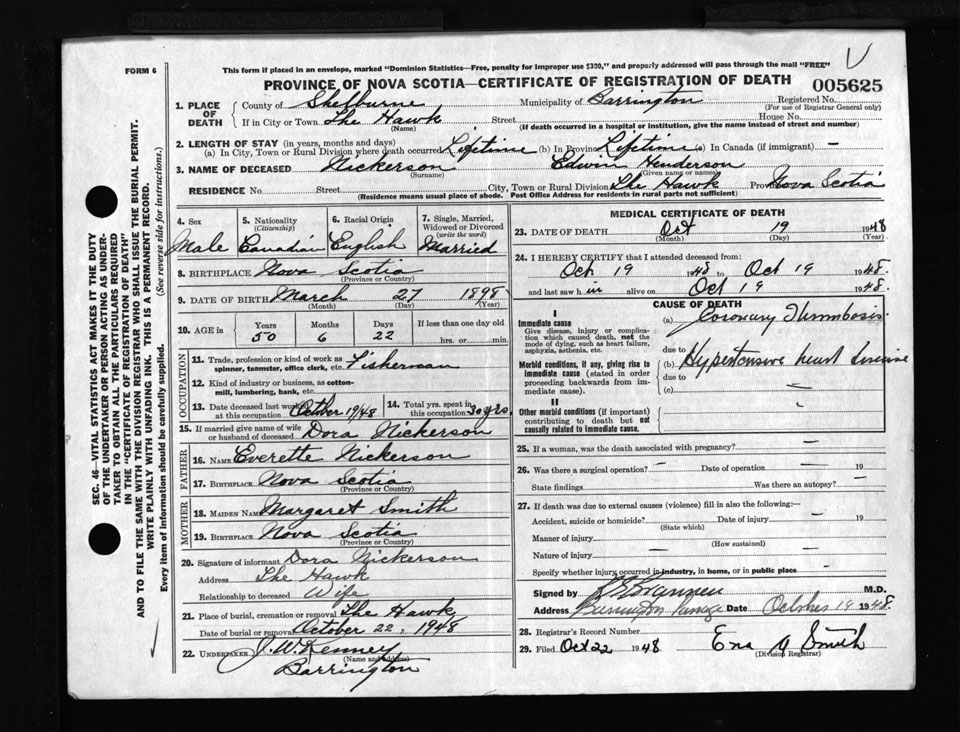 FORM 6
This form if placed in an envelope, marked "Dominion Statistics—Free, penalty for improper use $300," and properly addressed will pass through the mail "FREE"
PROVINCE OF NOVA SCOTIA—CERTIFICATE OF REGISTRATION OF DEATH
005625
1. PLACE OF DEATH
County of Shelburne Municipality of Barrington Registered No.
(For use of Registrar General only)
If in City or Town The Hawk Street House No.
(Name) (If death occurred in a hospital or institution, give the name instead of street and number)
2. LENGTH OF STAY (in years, months and days)
(a) In City, Town or Rural Division where death occurred Lifetime (b) In Province Lifetime (c) In Canada (if immigrant) —
3. NAME OF DECEASED Nickerson Edwin Henderson
(Surname) (Given name or names)
RESIDENCE No. Street City, Town or Rural Division The Hawk Province Nova Scotia
(Residence means usual place of abode. Post Office Address for residents in rural parts not sufficient)
4. Sex Male
5. Nationality (Citizenship) Canadian
6. Racial Origin English
7. Single, Married, Widowed or Divorced (write the word) Married
8. BIRTHPLACE Nova Scotia
(Province or Country)
9. DATE OF BIRTH March 27 1898
(Month) (Day) (Year)
10. AGE in Years Months Days If less than one day old
50 6 22 hrs. or min.
OCCUPATION
11. Trade, profession or kind of work as spinner, teamster, office clerk, etc. Fisherman
12. Kind of industry or business, as cotton-mill, lumbering, bank, etc.
13. Date deceased last worked at this occupation October 19/48
14. Total yrs. spent in this occupation 30 yrs.
15. If married give name of wife or husband of deceased Dora Nickerson
FATHER
16. NAME Everette Nickerson
17. BIRTHPLACE Nova Scotia
(Province or Country)
MOTHER
18. MAIDEN NAME Margaret Smith
19. BIRTHPLACE Nova Scotia
(Province or Country)
20. Signature of informant Dora Nickerson
Address The Hawk
Relationship to deceased Wife
21. Place of burial, cremation or removal The Hawk
Date of burial or removal October 22, 1948
22. UNDERTAKER J. W. Kenney
(Name and address)
Barrington
MEDICAL CERTIFICATE OF DEATH
23. DATE OF DEATH Oct 19 1948
(Month) (Day) (Year)
24. I HEREBY CERTIFY that I attended deceased from:
Oct 19 1948 to Oct 19 1948.
and last saw h im alive on Oct 19 1948.
CAUSE OF DEATH
I
Immediate cause
Give disease, injury or complication which caused death, not the mode of dying, such as heart failure, asphyxia, asthenia, etc.
(a) Coronary Thrombosis.
due to
Morbid conditions, if any, giving rise to immediate cause (stated in order proceeding backwards from immediate cause).
(b) Hypertensive heart disease
due to
(c) —
II
Other morbid conditions (if important) contributing to death but not causally related to immediate cause.
—
25. If a woman, was the death associated with pregnancy? —
26. Was there a surgical operation? — Date of operation — 19 —
State findings Was there an autopsy? —
27. If death was due to external causes (violence) fill in also the following:—
Accident, suicide or homicide? Date of injury — 19
(State which)
Manner of injury
(How sustained)
Nature of injury — —
Specify whether injury occurred in industry, in home, or in public place —
Signed by M.D.
Address Barrington Passage Date October 19 1948.
28. Registrar's Record Number
29. Filed Oct 22 1948 Ena A Smith
(Division Registrar)
SEC. 46—VITAL STATISTICS ACT MAKES IT THE DUTY
OF THE UNDERTAKER OR PERSON ACTING AS UNDER-
TAKER TO OBTAIN ALL THE PARTICULARS REQUIRED
IN THE "CERTIFICATE OF REGISTRATION OF DEATH"
AND TO FILE THE SAME WITH THE DIVISION REGISTRAR WHO SHALL ISSUE THE BURIAL PERMIT.
WRITE PLAINLY WITH UNFADING INK. THIS IS A PERMANENT RECORD.
Every item of information should be carefully supplied. (See reverse side for instructions.)